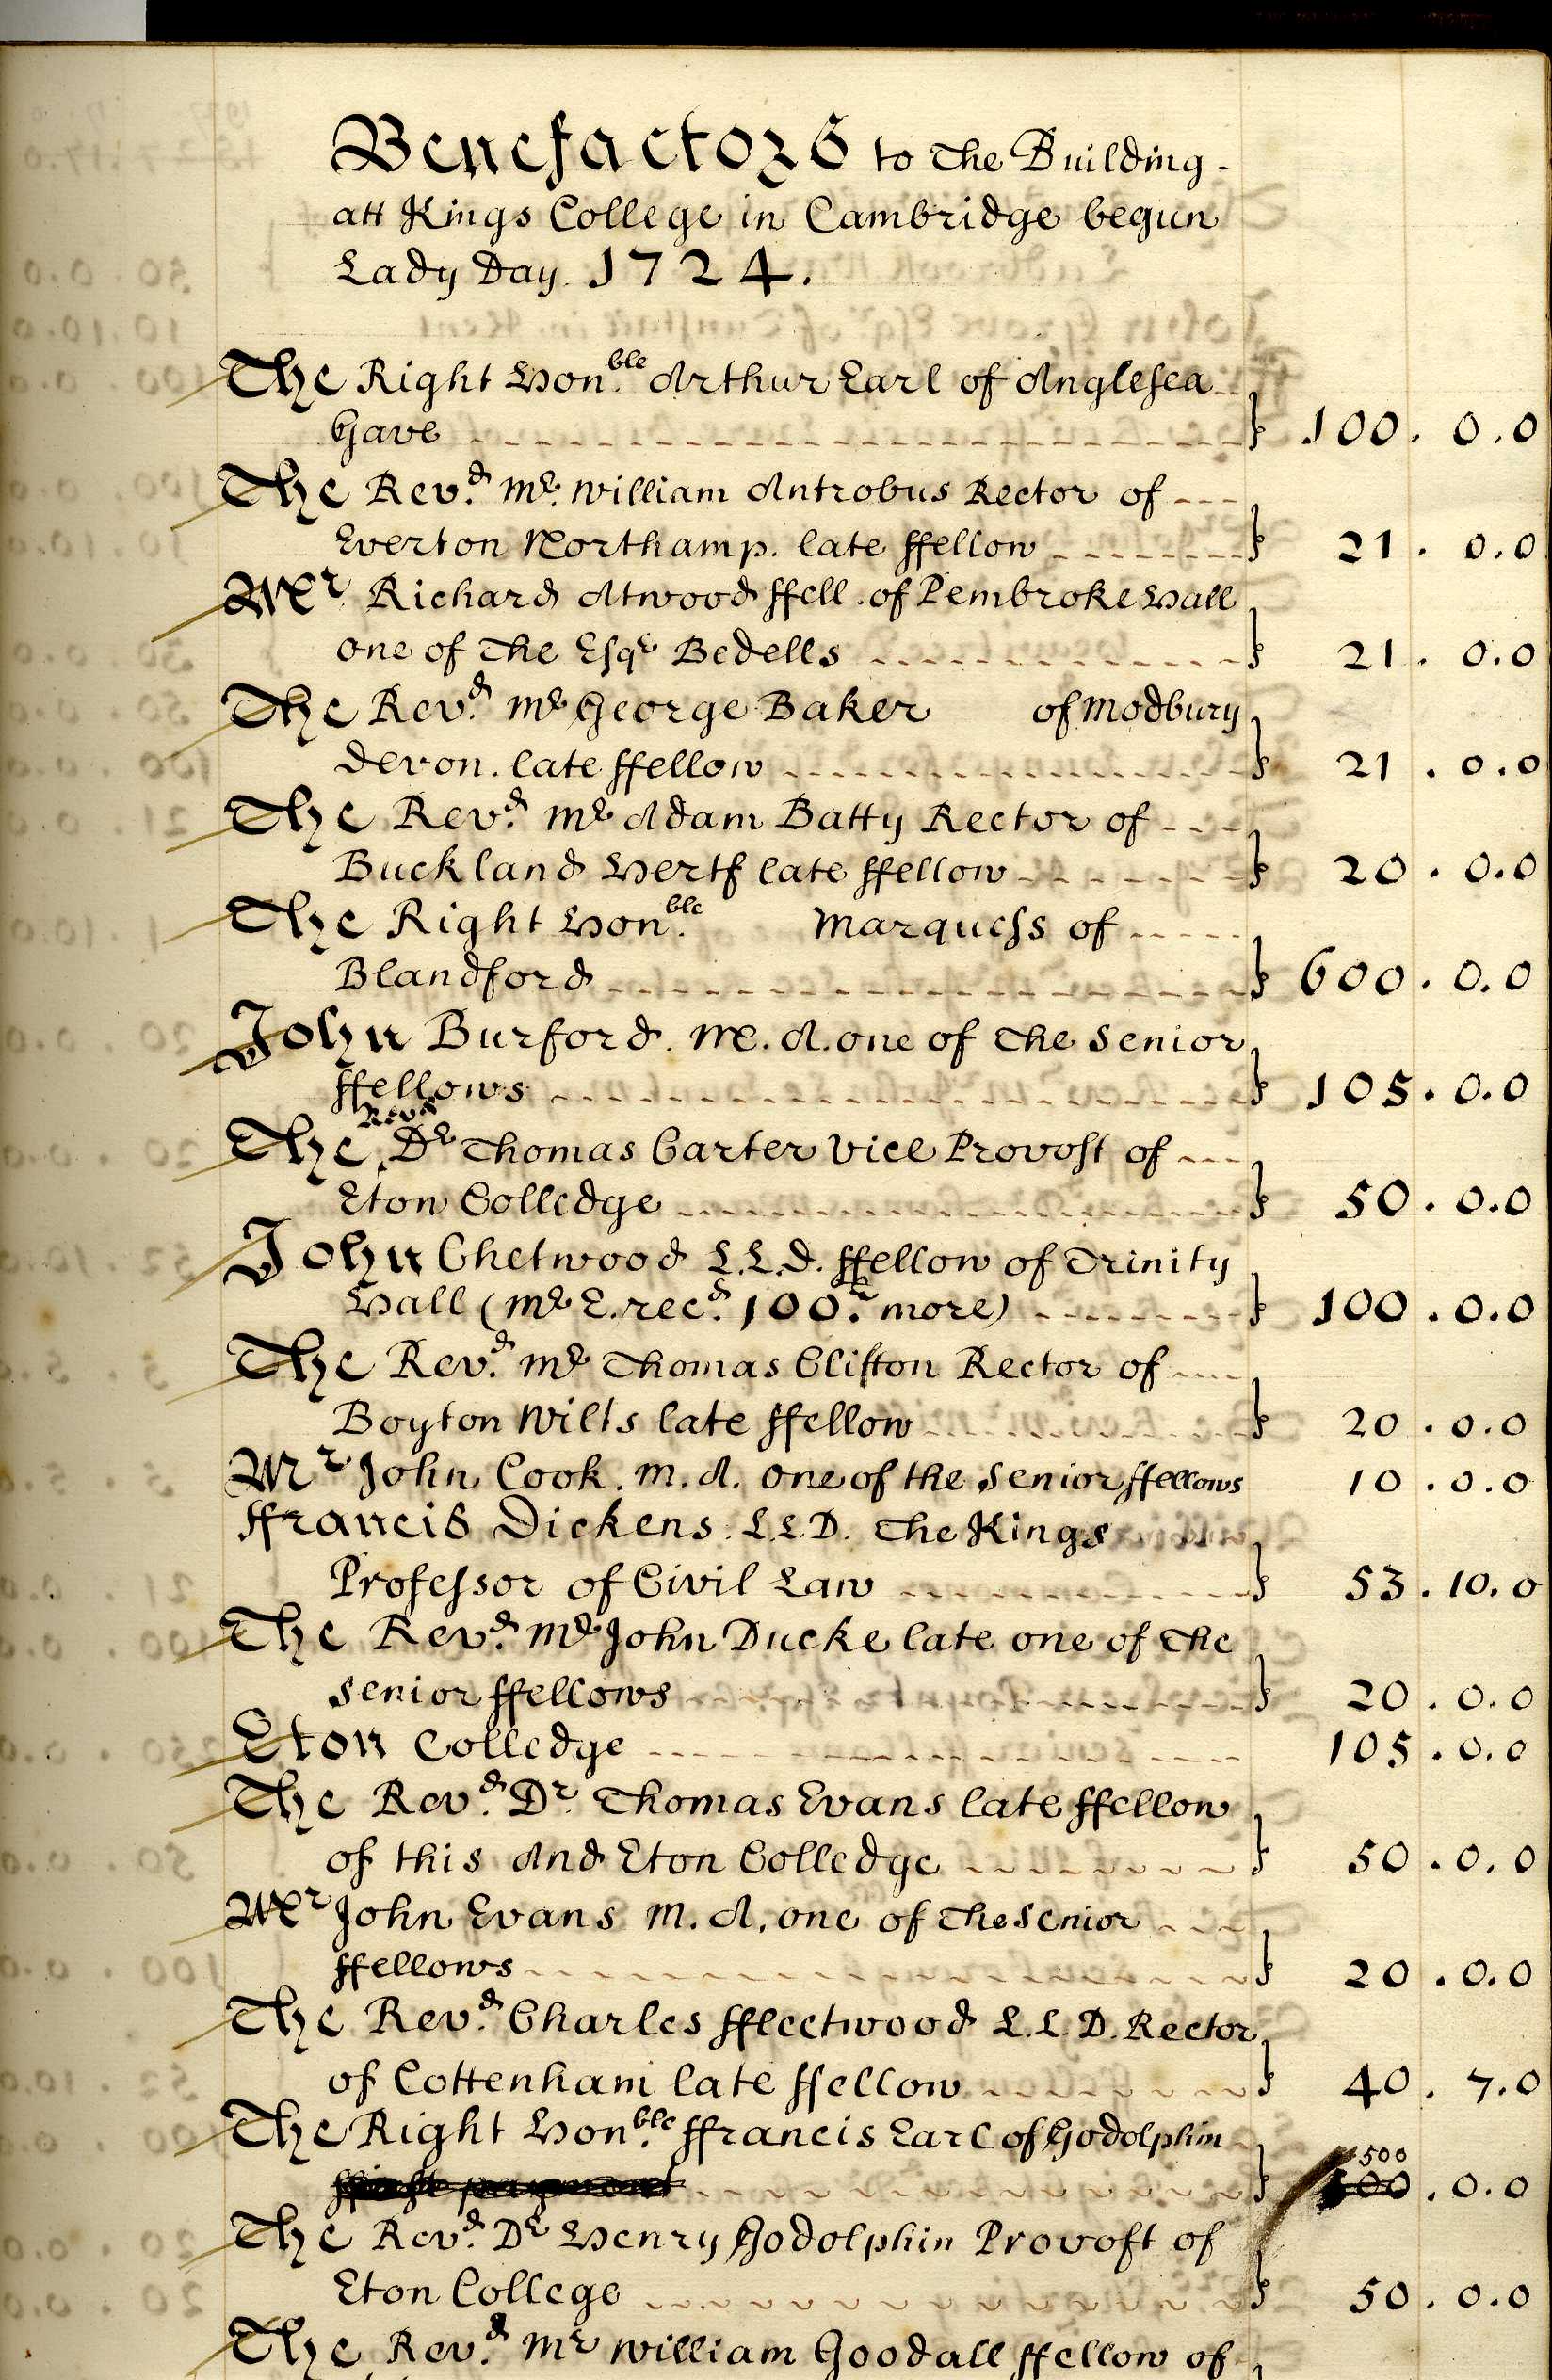 Benefactors to the Building
att Kings College in Cambridge begun
Lady Day. 1724.
The Right Hon.ble Arthur Earl of Angleſea
Gave 100. 0. 0
The Rev.d Mr. William Antrobus Rector of
Everton Northamp. late ffellow 21. 0. 0
Mr Richard Atwood ffell. of Pembroke Hall
one of the Eſqr Bedells 21. 0. 0
The Rev.d Mr George Baker of Modbury
Devon. late ffellow 21. 0. 0
The Rev.d Mr Adam Batty Rector of
Buckland Hertſ late ffellow 20. 0. 0
The Right Hon.ble Marqueſs of
Blandford 600. 0. 0
John Burford. M.A. one of the Senior
ffellows 105. 0. 0
The Revd Dr Thomas Carter Vice Provoſt of
Eton Colledge 50. 0. 0
John Chetwood L.L.D. ffellow of Trinity
Hall (Mr E. rec.d 100.l more) 100. 0. 0
The Rev.d Mr Thomas Clifton Rector of
Boyton Wilts late ffellow 20. 0. 0
Mr John Cook. M.A. one of the Senior ffellows 10. 0. 0
ffrancis Dickens. L.L.D. The Kings
Profeſsor of Civil Law 53. 10. 0
The Rev.d Mr John Ducke late one of the
Senior ffellows 20. 0. 0
Eton Colledge 105. 0. 0
The Rev.d Dr. Thomas Evans late ffellow
of this And Eton Colledge 50. 0. 0
Mr John Evans M.A. one of the Senior
ffellows 20. 0. 0
The Rev.d Charles ffleetwood L.L.D. Rector
of Cottenham late ffellow 40. 7. 0
The Right Hon.ble ffrancis Earl of Godolphin
500
100. 0. 0
The Rev.d Dr Henry Godolphin Provoſt of
Eton College 50. 0. 0
The Rev.d Mr William Goodall ffellow of